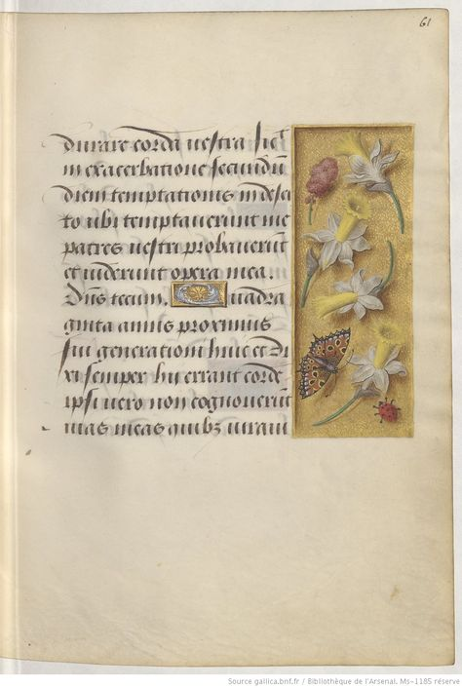 61
durare corda vestra sic
in exacerbatione secundū
diem temptationis in deser
to ubi temptaverunt me
patres vestri probaverūt
et viderunt opera mea.
Dñs tecum. uadra
ginta annis proximus
fui generationi huic et di
xi semper hii errant corde
ipsi vero non cognoverūt
vias meas quibꝫ iuravi
Source gallica.bnf.fr / Bibliothèque de l'Arsenal, Ms-1185 réserve